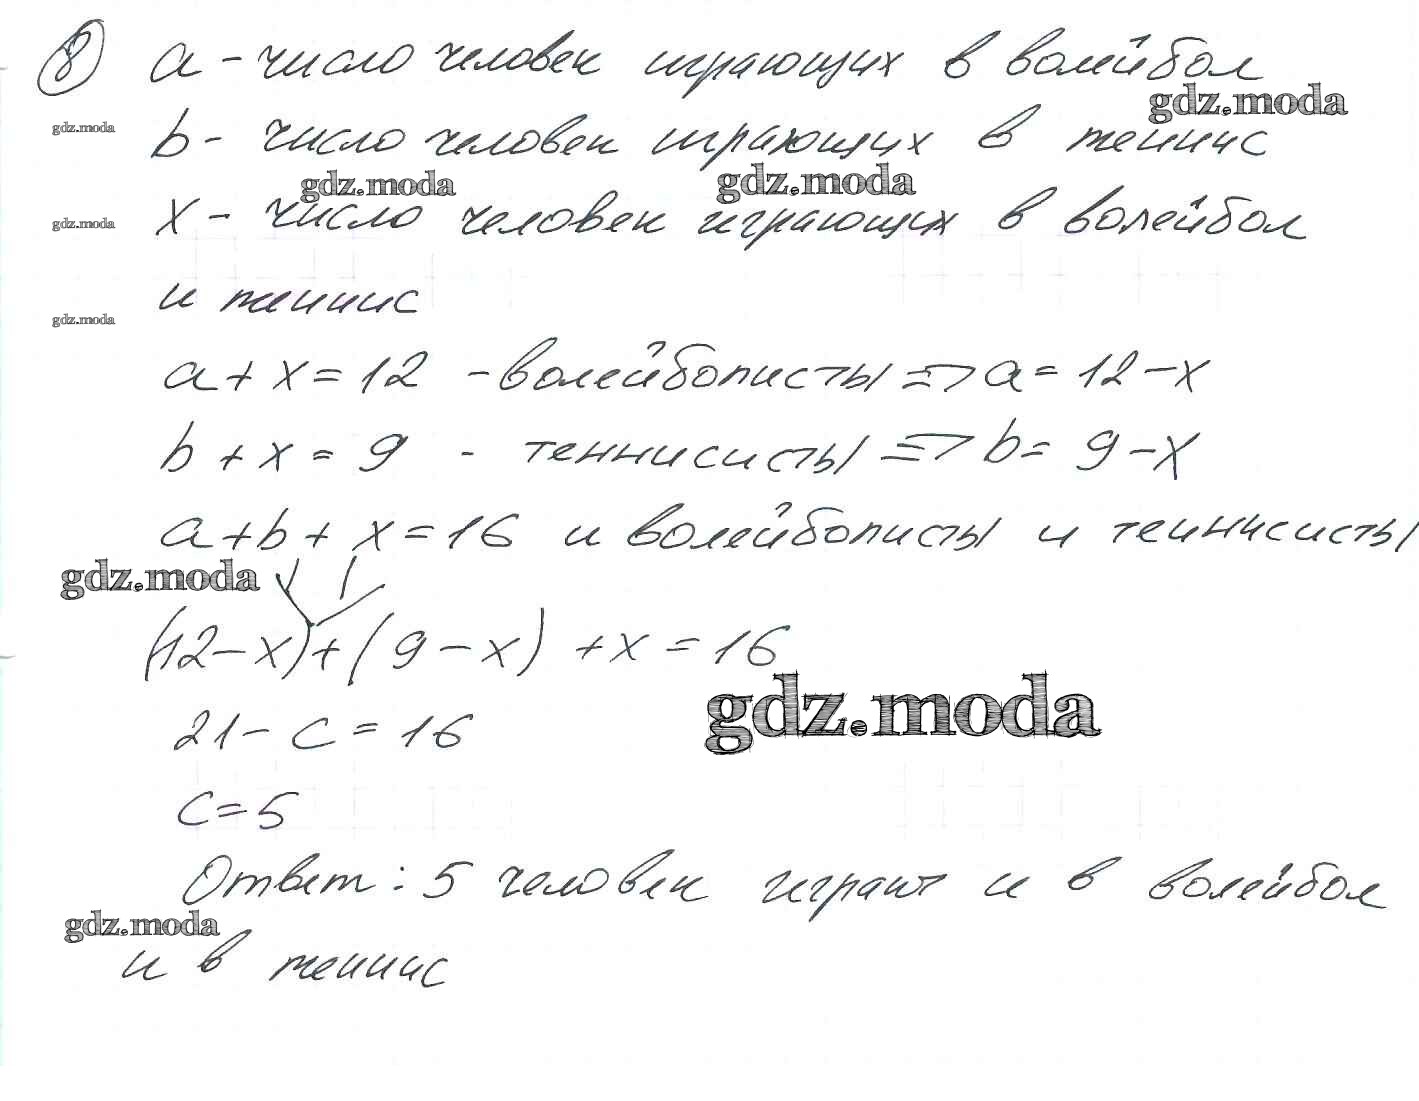 8 a - число человек играющих в волейбол
gdz.moda
gdz.moda
b - число человек играющих в теннис
gdz.moda
gdz.moda
gdz.moda
x - число человек играющих в волейбол
и теннис
gdz.moda
a + x = 12 - волейболисты => a = 12 - x
b + x = 9 - теннисисты => b = 9 - x
a + b + x = 16 и волейболисты и теннисисты
gdz.moda
(12 - x) + (9 - x) + x = 16
gdz.moda
21 - c = 16
c = 5
Ответ: 5 человек играют и в волейбол
gdz.moda
и в теннис